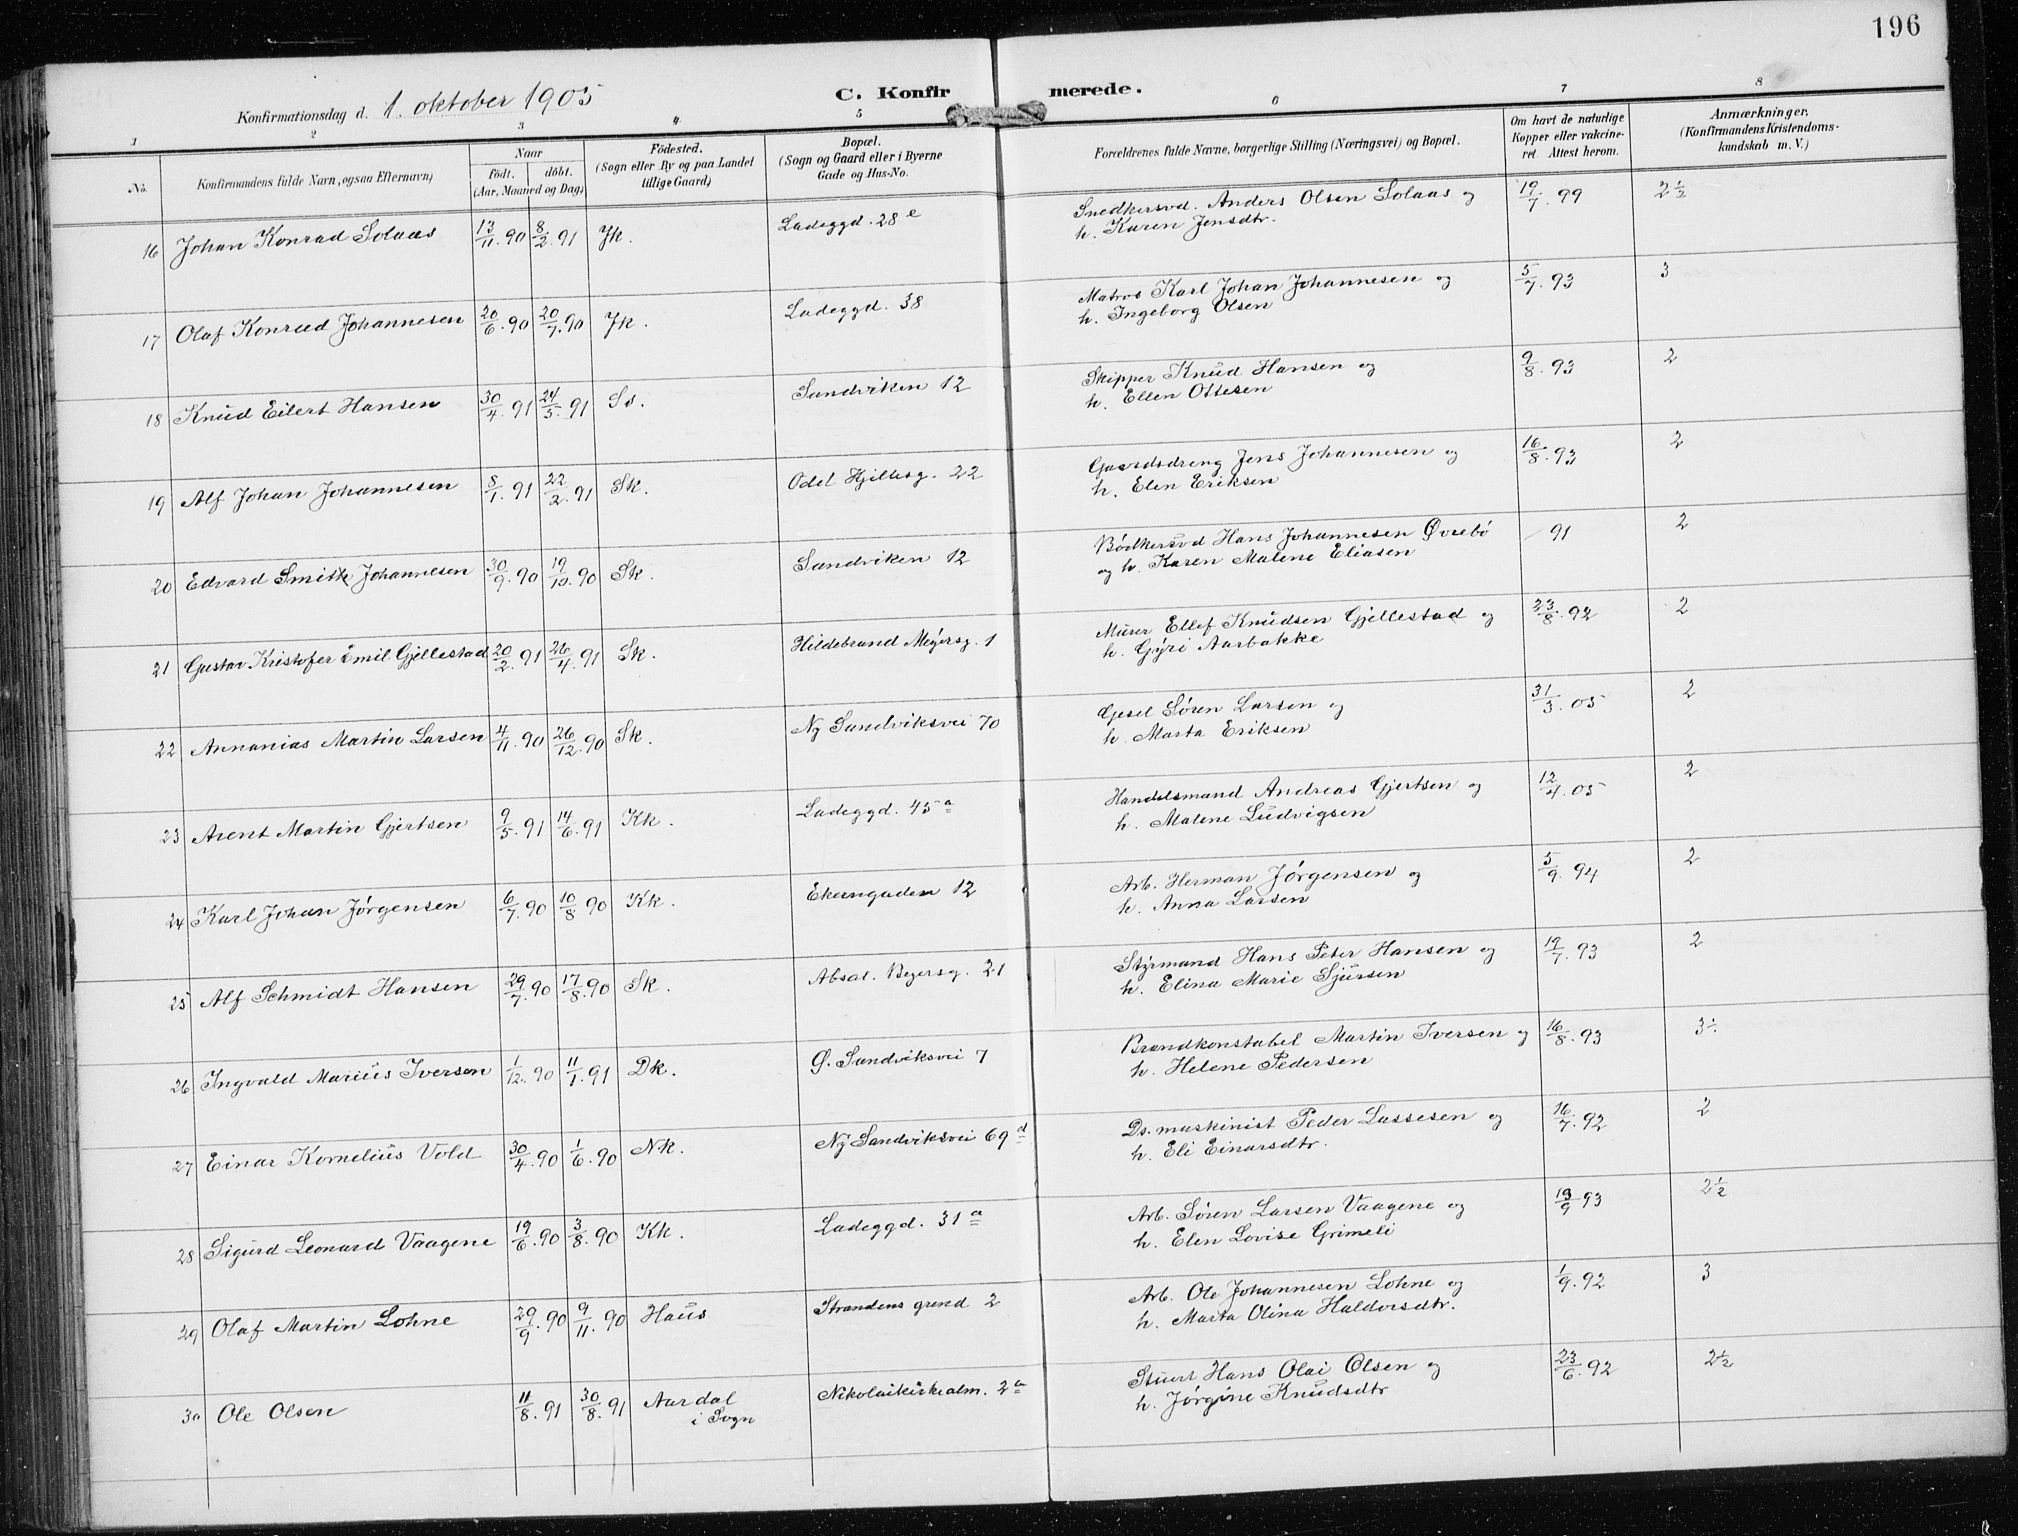 196
Konfirmationsdag d. 1. oktober 1905
C. Konfirmerede.
1 2 3 4 5 6 7 8
No.
Konfirmandens fulde Navn, ogsaa Efternavn,
Naar
født. døbt.
(Aar, Maaned og Dag.)
Fødested.
(Sogn eller By og paa Landet
tillige Gaard)
Bopæl.
(Sogn og Gaard eller i Byerne
Gade og Hus-No.
Forældrenes fulde Navne, borgerlige Stilling (Næringsvei) og Bopæl.
Om havt de naturlige
Kopper eller vakcine-
ret. Attest herom.
Anmærkninger.
(Konfirmandens Kristendoms-
kundskab m. V.)
16 Johan Konrad Solaas 13/11. 90 8/2. 91 Jk. Ladeggd. 28 e Snedkersvd. Anders Olsen Solaas og 19/7. 99 2 1/2
h. Karen Jensdtr.
17 Olaf Konrad Johannesen 20/6. 90 20/7. 90 Jk. Ladeggd. 38 Matros Karl Johan Johannesen og 5/7. 93 3
h. Ingeborg Olsen
18 Knud Eilert Hansen 30/4. 91 24/5. 91 Ss. Sandviken 12 Skipper Knud Hansen og 9/8. 93 2
h. Ellen Ottesen
19 Alf Johan Johannesen 8/1. 91 22/2. 91 Sk. Odel Hjiltesg. 22 Gaardsdreng Jens Johannesen og 16/8. 93 2
h. Elen Eriksen
20 Edvard Smith Johannesen 30/9. 90 19/10. 90 Sk. Sandviken 12 Bødkersvd Hans Johannesen Øvrebø 91 2
og h. Karen Malene Eliasen
21 Gustav Kristofer Emil Gjellestad 20/2. 91 26/4. 91 Sk. Hildebrand Meyersg. 1 Murer Ellef Knudsen Gjellestad og 23/8. 92 2
h. Gyri Aarbakke
22 Annanias Martin Larsen 4/11. 90 26/12. 90 Sk. Ny Sandviksvei 70 Gesel Søren Larsen og 31/3. 05 2
h. Marta Eriksen
23 Arent Martin Gjertsen 9/5. 91 14/6. 91 Kk. Ladeggd. 45 a Handelsmand Andreas Gjertsen og 12/4. 05 2
h. Malene Ludvigsen
24 Karl Johan Jørgensen 6/7. 90 10/8. 90 Kk. Ekerngaden 12 Arb. Herman Jørgensen og 5/9. 94 2
h. Anna Larsen
25 Alf Schmidt Hansen 29/7. 90 17/8. 90 Sk. Absal. Beyersg. 21 Styrmand Hans Peter Hansen og 19/7. 93 2
h. Elina Marie Sjursen
26 Ingvald Marius Iversen 1/12. 90 11/1. 91 Dk. Ø. Sandviksvei 7 Brandkonstabel Martin Iversen og 16/8. 93 3÷
h. Helene Pedersen
27 Einar Kornelius Vold 30/4. 90 1/6. 90 Nk. Ny Sandviksvei 69 d Ds. maskinist Peder Lassesen og 16/7. 92 2
h. Eli Einarsdtr.
28 Sigurd Leonard Vaagene 19/6. 90 3/8. 90 Kk. Ladeggd. 31 a Arb. Søren Larsen Vaagene og 19/9 93 2 1/2
h. Elen Lovise Grimeli
29 Olaf Martin Lohne 29/9. 90 9/11. 90 Haus Strandens grend 2 Arb. Ole Johannesen Lohne og 1/9. 92 3
h. Marta Olina Haldorsdtr.
30 Ole Olsen 11/8. 91 30/8. 91 Aardal Nikolaikirkealm. 2 a Stuert Hans Olai Olsen og 23/6. 92 2 1/2
i Sogn h. Jørgine Knudsdtr